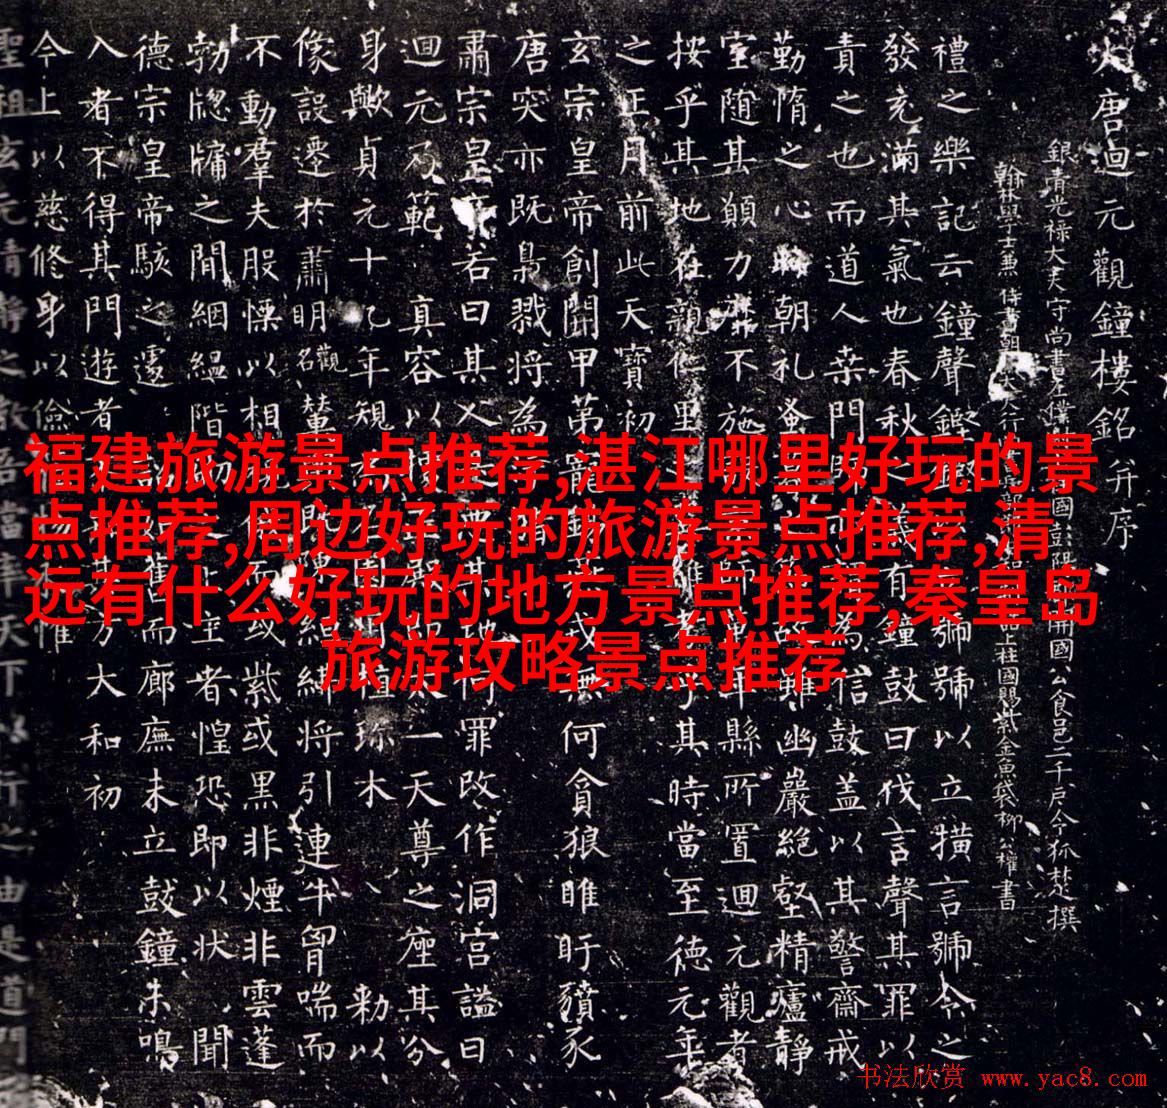 大唐迴元觀鐘樓銘并序
銀青光祿大夫守尚書左僕國彭陽開國公食邑二千戶令狐楚撰
翰林學士兼侍書朝大夫行柱國賜紫金魚袋柳公權書
禮之樂記云鐘聲鏗號號以立横言號令之
發充滿其氣也春秋之義有鐘鼓曰伐言聲其罪以
責之也而道人桒門為信鼓盖以其警齋戒
勤惰之心時朝礼蚤雖幽巖絕壑精廬靜
室随其願力靡不施而縣所置迴元觀者
按乎其地在親仁里之其時當至德元年
之正月前此天寶初
玄宗皇帝創開甲第寵或無何貪狼睢盱豮豕
唐突亦既梟戮将為
肅宗皇帝若曰其人是其地何罪改作洞宮謚曰
迴元乃範 真容以殿一天尊之座其分
身歟貞元十九年規環木 勅以
像設遷於肅明觀将引連牛胷喘而
不動羣夫股慄以相或紫或黒非煙非雲蓬
勃牕牖之間絪縕階至者惶恐即以状 聞
德宗皇帝駭之遽舊而廊廡未立鼓鐘未鳴
入者不得其門遊者方大和初
今上以慈修身以儉惟
聖祖玄元清静之教吾當率天下以行之由是道門
福建旅游景点推荐,湛江哪里好玩的景
点推荐,周边好玩的旅游景点推荐,清
远有什么好玩的地方景点推荐,秦皇岛
旅游攻略景点推荐
书法欣赏 www.yac8.com